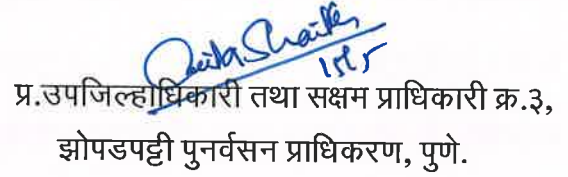 15/5
प्र.उपजिल्हाधिकारी तथा सक्षम प्राधिकारी क्र.३,
झोपडपट्टी पुनर्वसन प्राधिकरण, पुणे.